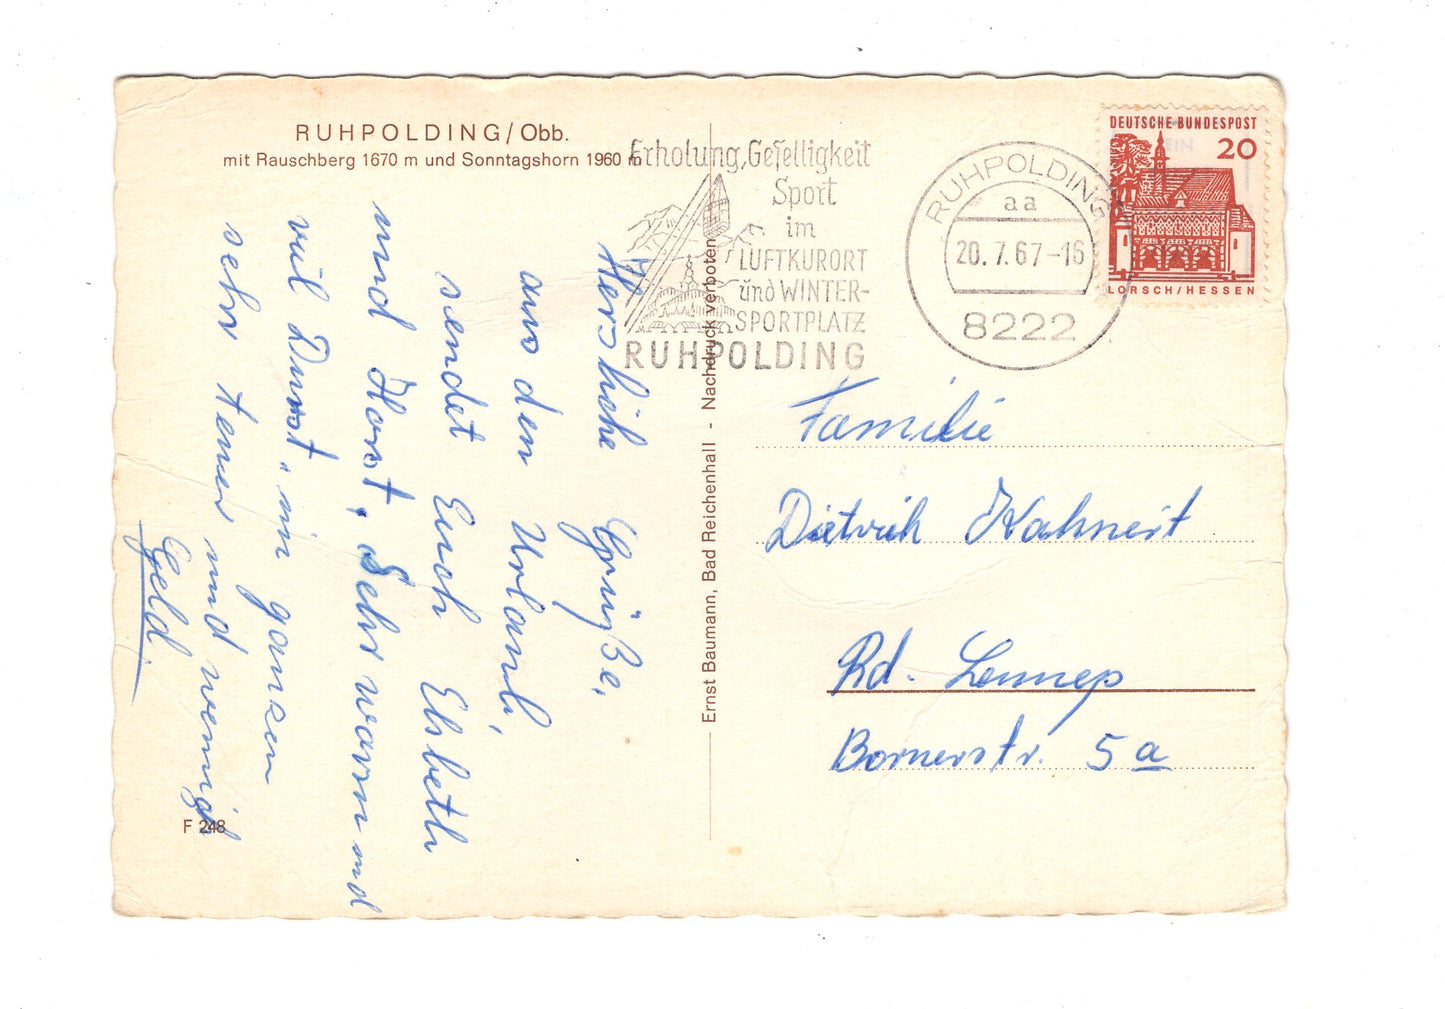 RUHPOLDING/Obb.
mit Rauschberg 1670 m und Sonntagshorn 1960 m
Erholung, Geselligkeit
Sport
im
LUFTKURORT
und WINTER-
SPORTPLATZ
RUHPOLDING
RUHPOLDING
aa
20.7.67-16
8222
DEUTSCHE BUNDESPOST
20
LORSCH/HESSEN
Herzliche Grüße,
aus den Urlaub,
sendet Euch Elsbeth
und Horst, Sehr warm und
viel Durst, im ganzen
sehr teuer und wenig
Geld.
Ernst Baumann, Bad Reichenhall - Nachdruck verboten
Familie
Dietrich Kahnert
Rd. Lennep
Bornerstr. 5a
F 248